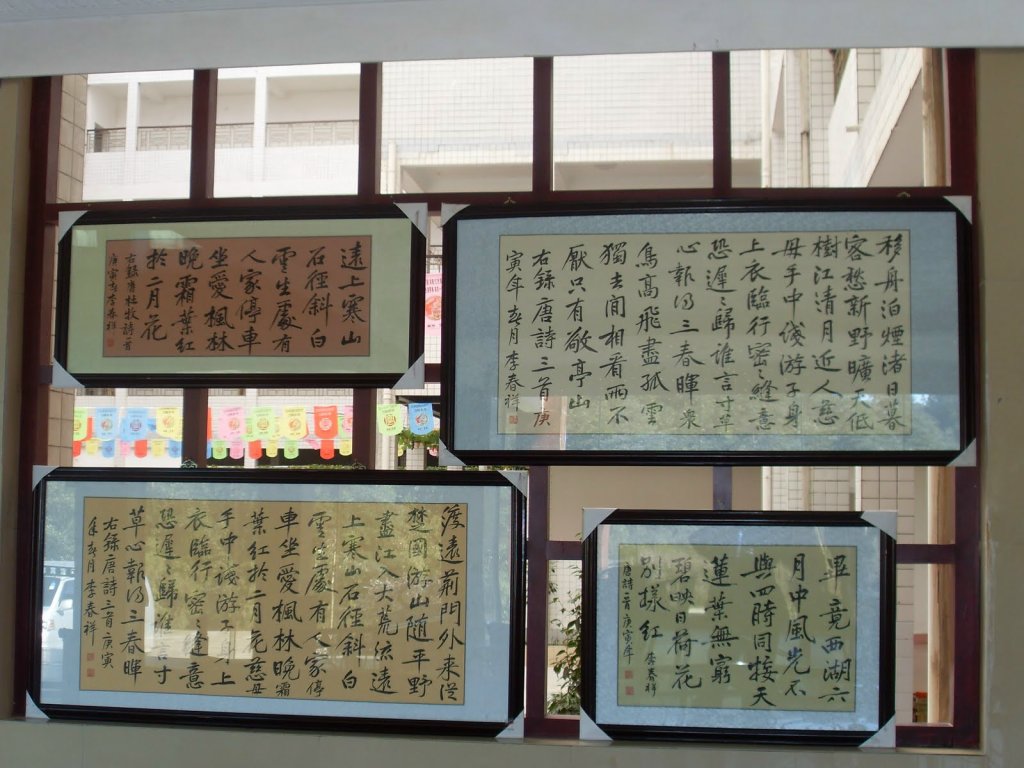 遠上寒山
石徑斜白
雲生處有
人家停車
坐愛楓林
晚霜葉紅
於二月花
右錄唐杜牧詩一首
庚寅春李春祥
移舟泊煙渚日暮
客愁新野曠天低
樹江清月近人慈
母手中綫游子身
上衣臨行密〻縫意
恐遲〻歸誰言寸草
心報得三春暉衆
鳥高飛盡孤雲
獨去閒相看兩不
厭只有敬亭山
右錄唐詩三首庚
寅年春月李春祥
渡遠荊門外來從
楚國游山隨平野
盡江入大荒流遠
上寒山石徑斜白
雲生處有人家停
車坐愛楓林晚霜
葉紅於二月花慈母
手中綫游子身上
衣臨行密〻縫意
恐遲〻歸誰言寸
草心報得三春暉
右錄唐詩三首庚寅
年春月李春祥
畢竟西湖六
月中風光不
與四時同接天
蓮葉無窮
碧映日荷花
別樣紅 李春祥
唐詩一首庚寅年